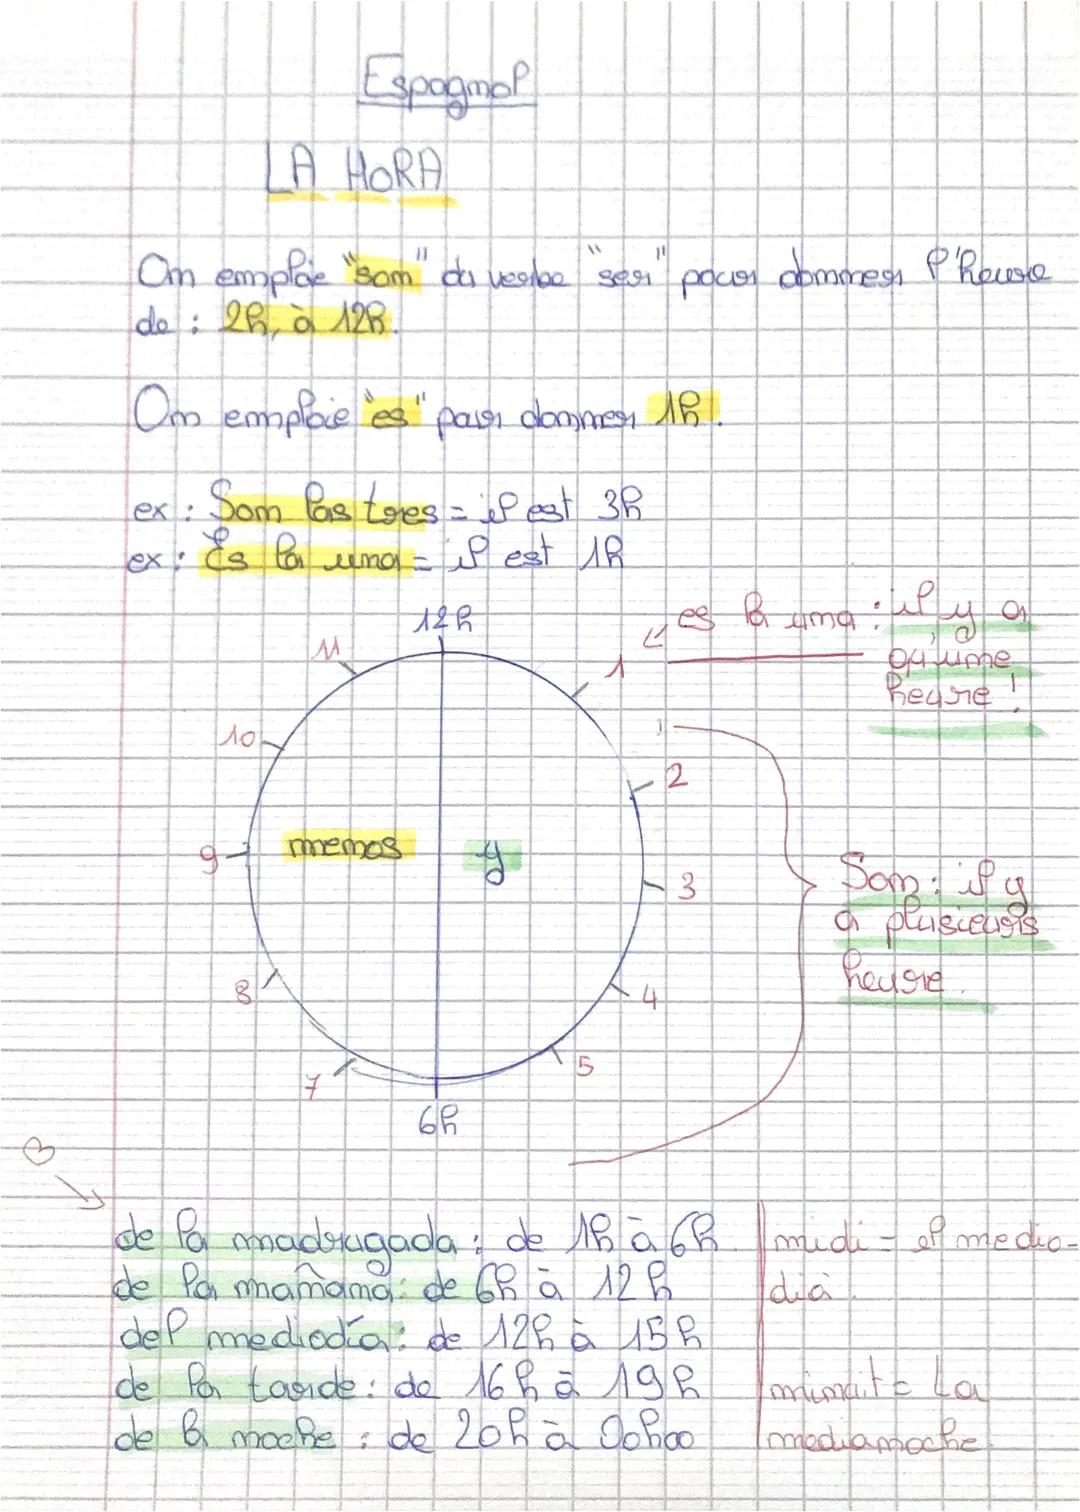 Espagnol
LA HORA
On emploie "son" du verbe "ser" pour donner l'heure
de : 2h, à 12h.
On emploie "es" pour donner 1h.
ex : Son las tres = il est 3h
ex : Es la una = il est 1h
12h
es la una : il y a
qu'une
heure !
11
1
10
2
menos
y
9
3
Son : il y
a plusieurs
heure.
8
4
7
5
6h
de la madrugada : de 1h à 6h
de la mañana : de 6h à 12h
del mediodía : de 12h à 15h
de la tarde : de 16h à 19h
de la noche : de 20h à 00h00
midi = el medio-
dià.
minuit = La
medianoche.